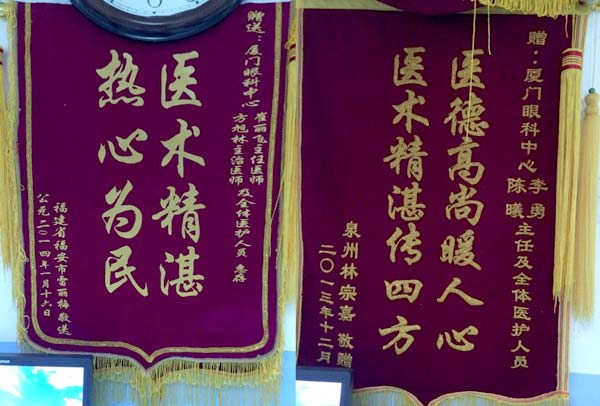 赠送：厦门眼科中心
崔丽飞主任医师
方旭林主治医师
及全体医护人员 惠存
医术精湛
热心为民
福建省福安市雷丽梅敬送
公元二〇一四年一月十六日
赠：厦门眼科中心
李勇
陈曦
主任及全体医护人员
医德高尚暖人心
医术精湛传四方
泉州林宗嘉 敬赠
二〇一三年十二月